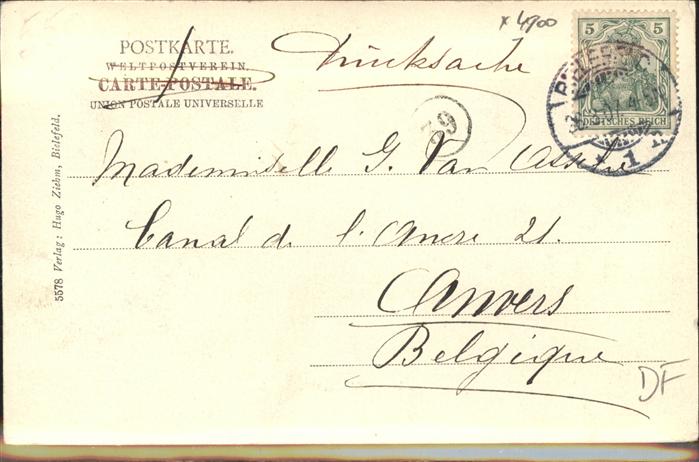 x 4,00
POSTKARTE.
WELTPOSTVEREIN.
CARTE POSTALE.
UNION POSTALE UNIVERSELLE
Drucksache
5 5
DEUTSCHES REICH
BIELEFELD
1
39
Mademoiselle G. Van Assche
Canal de l'Ancre 21.
Anvers
Belgique
5578 Verlag: Hugo Ziehm, Bielefeld.
DF